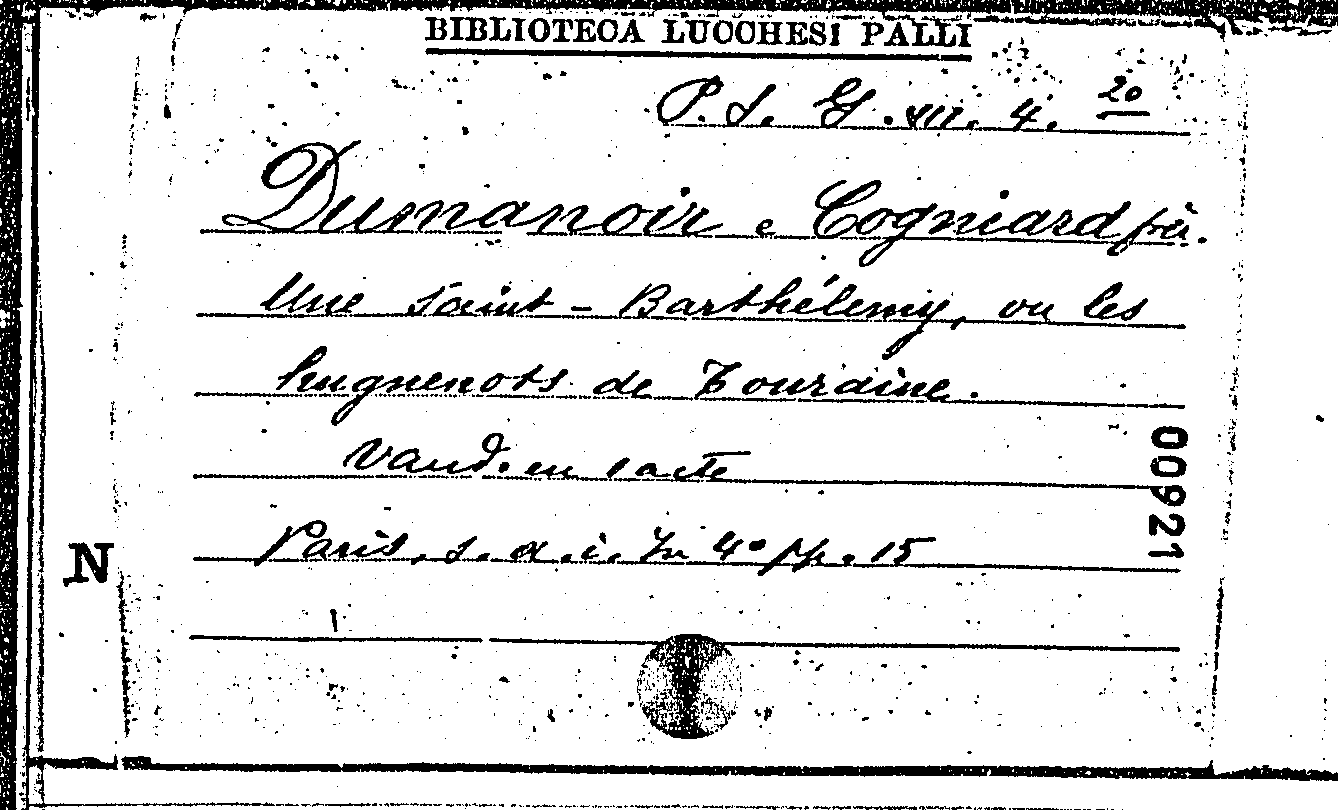 BIBLIOTECA LUCCHESI PALLI
P. S. G. VIII. 4. 20
Dumanoir e Cogniard frèr.
Une Saint-Barthélemy, ou les
huguenots de Touraine.
Vaud. en 1 acte
Paris, s. d. i. In 4° pp. 15
00921
N